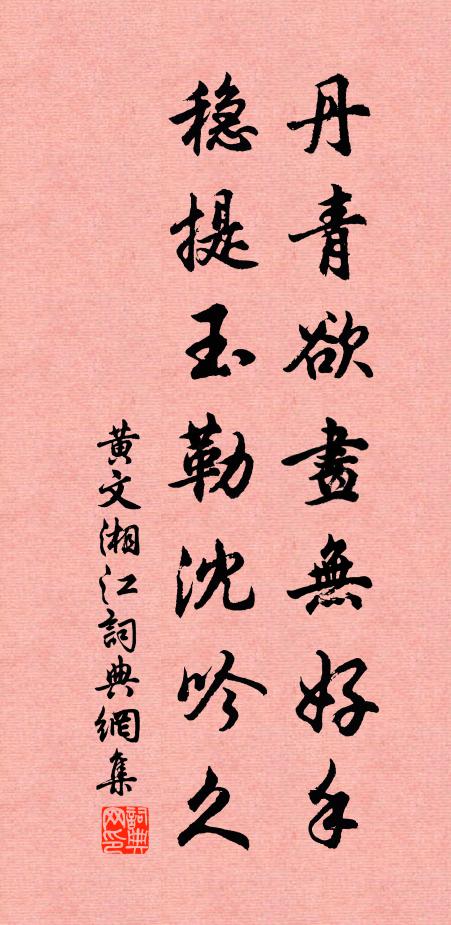 丹青欲畫無好手
穩提玉勒沈吟久
黃文湘江詞典網集
詞典網印